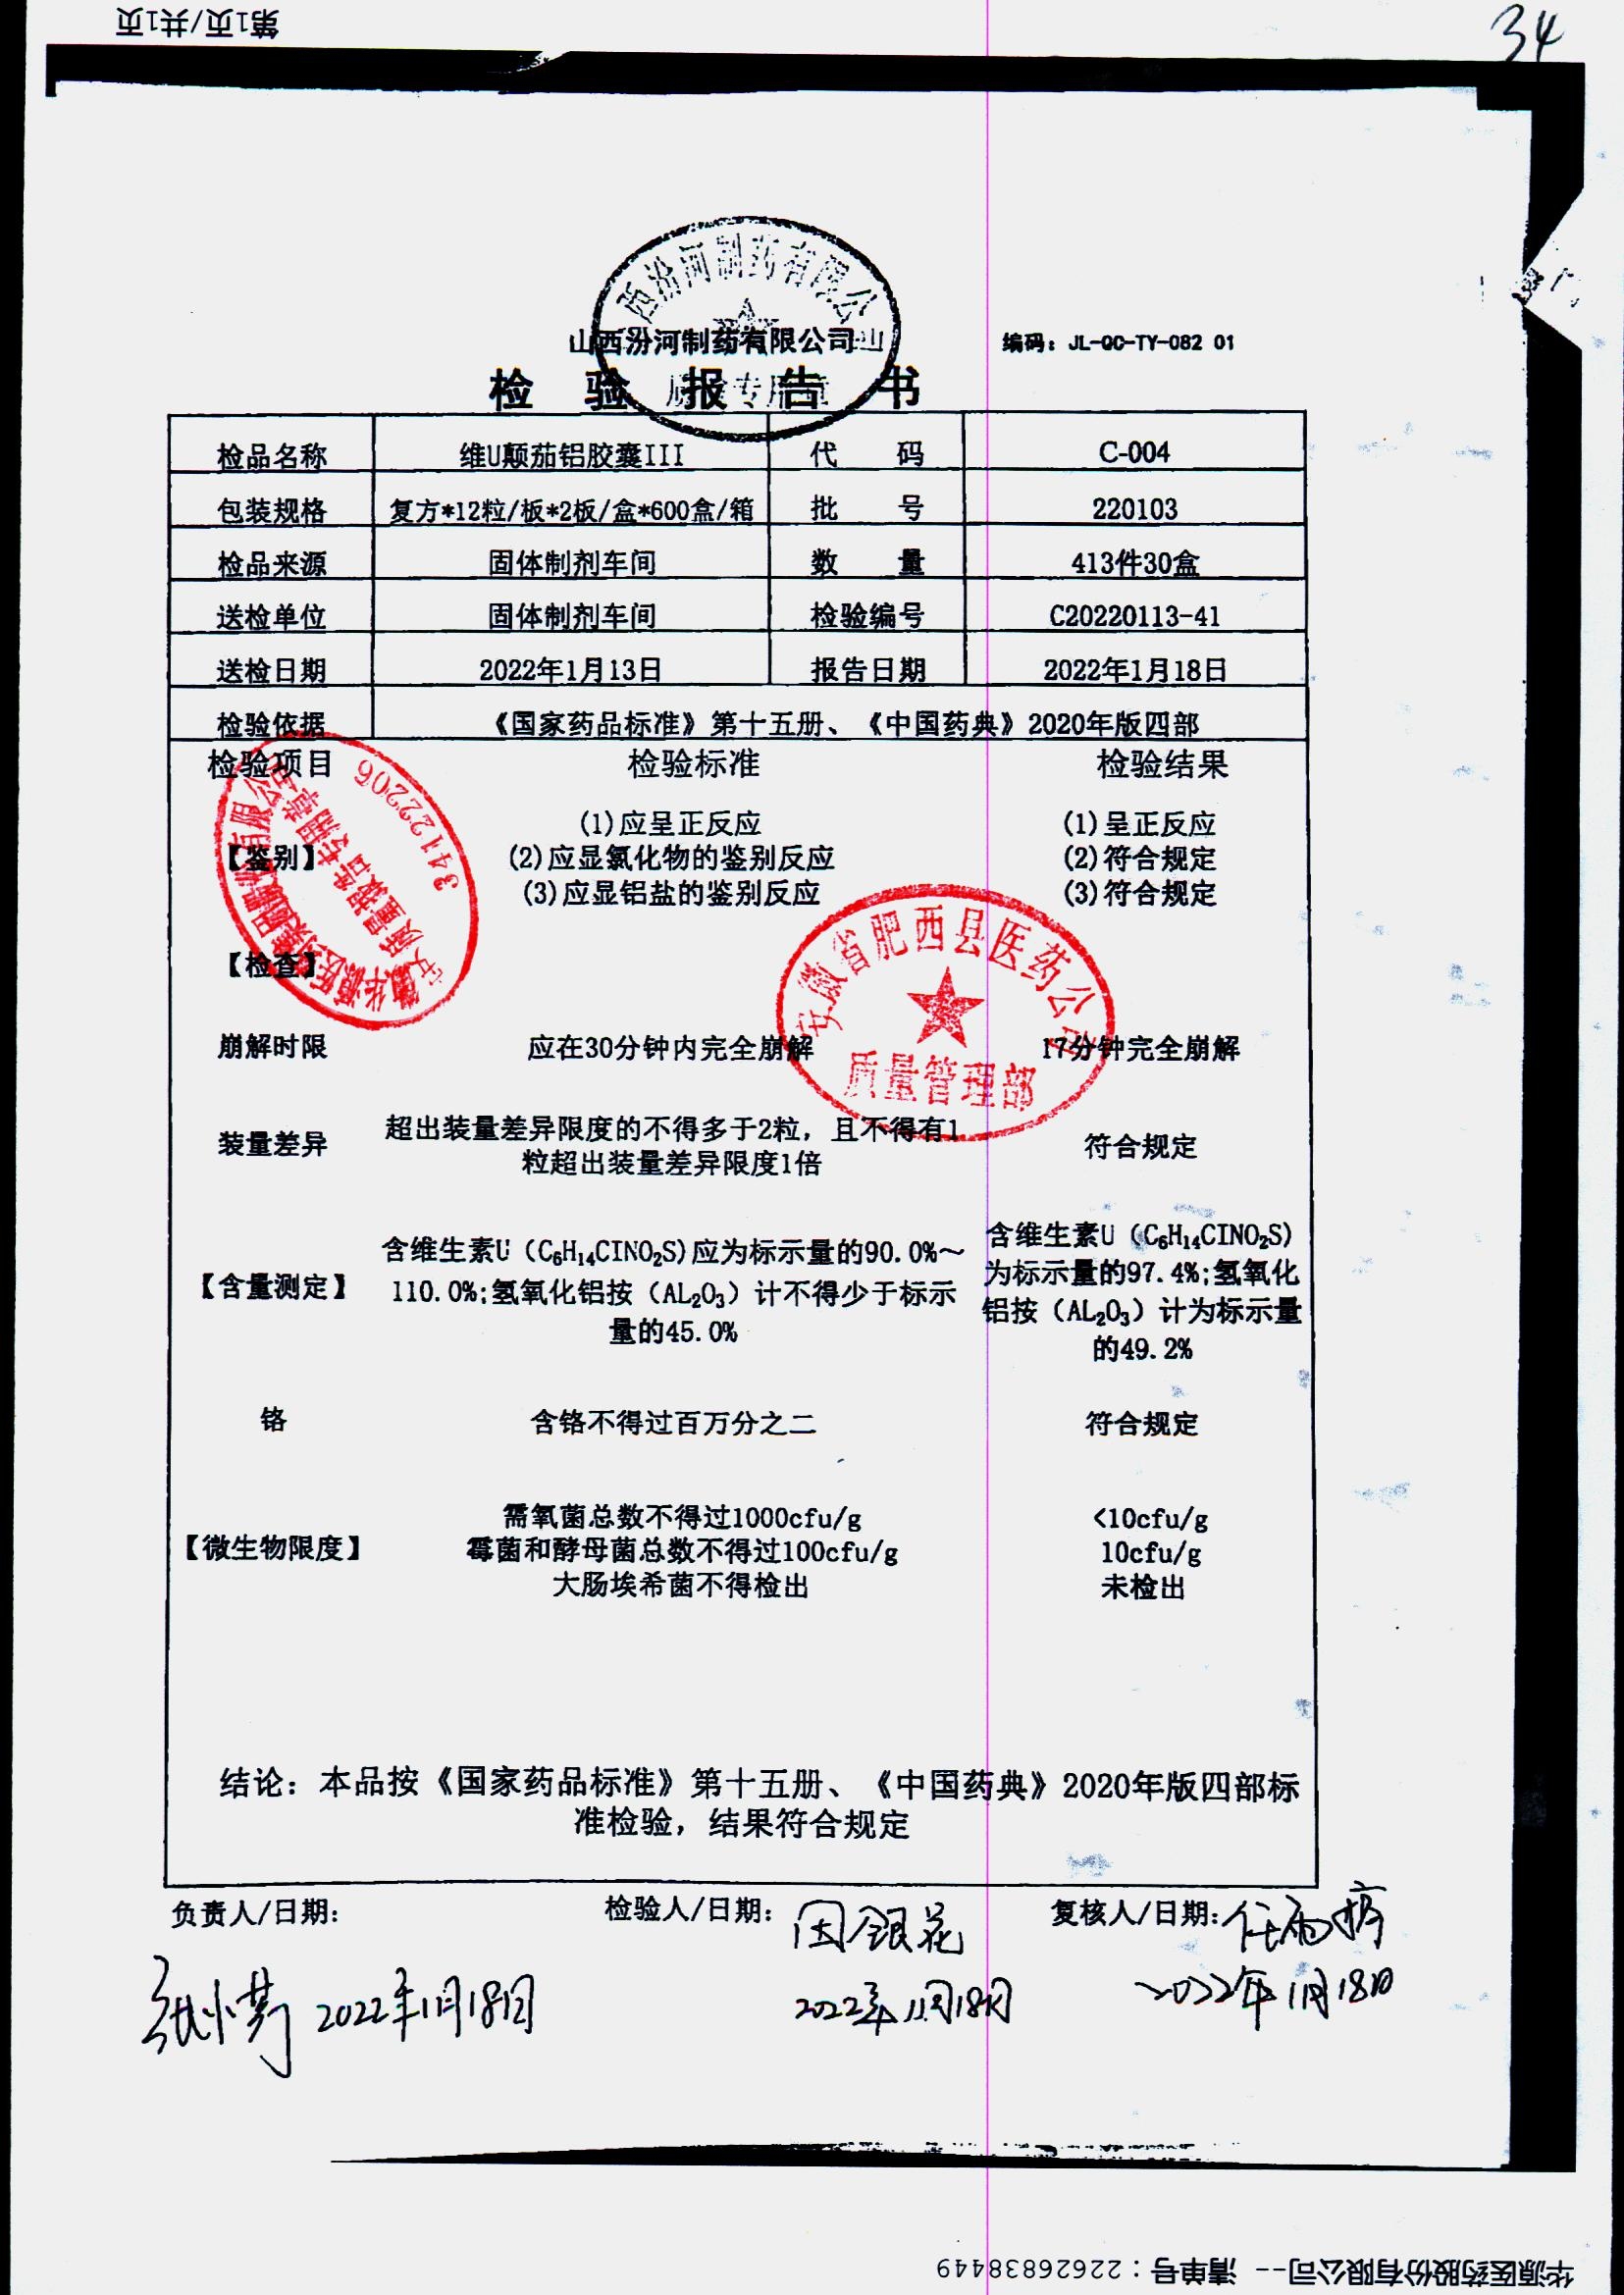 第1页/共1页
34
西汾河制药有限公
山西汾河制药有限公司
编码：JL-QC-TY-082 01
检验报告书
检品名称 维U颠茄铝胶囊III 代码 C-004
包装规格 复方*12粒/板*2板/盒*600盒/箱 批号 220103
检品来源 固体制剂车间 数量 413件30盒
送检单位 固体制剂车间 检验编号 C20220113-41
送检日期 2022年1月13日 报告日期 2022年1月18日
检验依据 《国家药品标准》第十五册、《中国药典》2020年版四部
检验项目 检验标准 检验结果
(1)应呈正反应 (1)呈正反应
【鉴别】 (2)应显氯化物的鉴别反应 (2)符合规定
(3)应显铝盐的鉴别反应 (3)符合规定
34122206
质量报告专用章
安徽省肥西县医药公司
质量管理部
【检查】
崩解时限 应在30分钟内完全崩解 17分钟完全崩解
装量差异 超出装量差异限度的不得多于2粒，且不得有1
粒超出装量差异限度1倍 符合规定
【含量测定】 含维生素U（C₆H₁₄CINO₂S)应为标示量的90.0%～
110.0%;氢氧化铝按（AL₂O₃）计不得少于标示
量的45.0%
含维生素U（C₆H₁₄CINO₂S)
为标示量的97.4%;氢氧化
铝按（AL₂O₃）计为标示量
的49.2%
铬 含铬不得过百万分之二 符合规定
需氧菌总数不得过1000cfu/g <10cfu/g
【微生物限度】 霉菌和酵母菌总数不得过100cfu/g 10cfu/g
大肠埃希菌不得检出 未检出
结论：本品按《国家药品标准》第十五册、《中国药典》2020年版四部标
准检验，结果符合规定
负责人/日期： 检验人/日期： 复核人/日期：
2022年1月18日 2022年1月18日 2022年1月18日
华源医药股份有限公司-- 清单号：22626838449